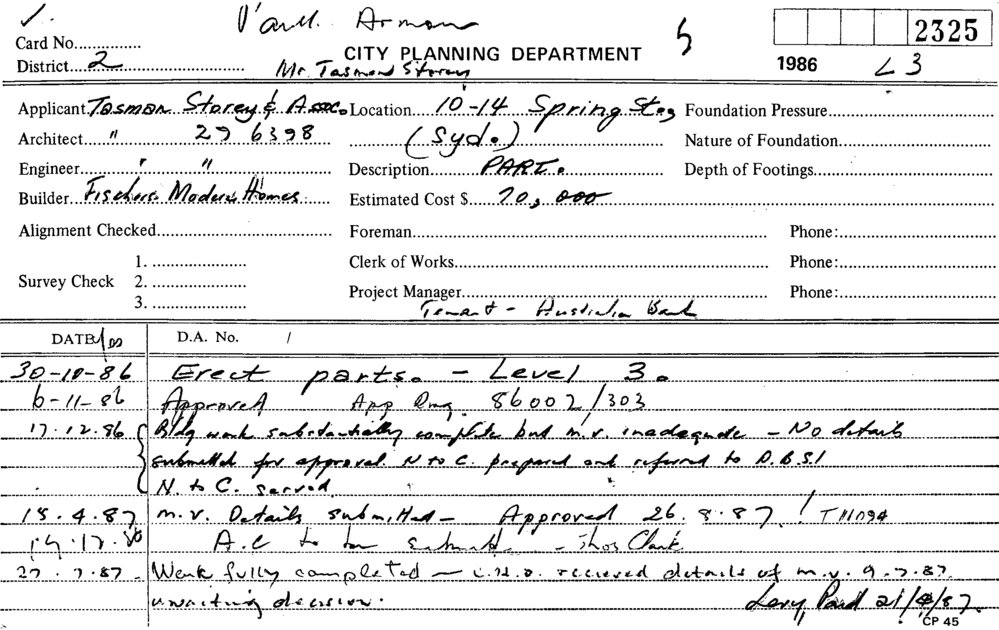 Paull Armon
Card No.
CITY PLANNING DEPARTMENT
5
2325
District 2
Mr. Tasman Storey
1986
L3
Applicant Tasman Storey & Assoc. Location 10-14 Spring St., Foundation Pressure
Architect " 29 6398 (Syd.) Nature of Foundation
Engineer " " Description PART. Depth of Footings
Builder Fischers Modern Homes. Estimated Cost $ 70,000
Alignment Checked Foreman Phone:
1. Clerk of Works Phone:
Survey Check 2.
3. Project Manager Phone:
Tenant - Australia Bank
DATE D.A. No. /
30-10-86 Erect parts. - Level 3.
6-11-86 Approved App Drwg. 86002/303
17.12.86 Bldg work substantially complete but m.v. inadequate - No details
submitted for approval. N to C. prepared and referred to D.B.S.I
N. to C. served.
15.4.87 m.v. Details submitted - Approved 26.8.87
A.C to be - Thos Clark
27.7.87. Work fully completed - recieved details of m.v. 9.7.87.
awaiting decision. 21/8/87.
CP 45